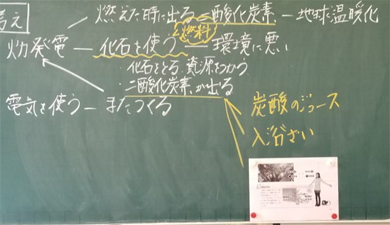 考え
燃えた時に出る 二酸化炭素 — 地球温暖化
燃料
火力発電 — 化石を使う — 環境に悪い
化石をとる 資源をつかう
二酸化炭素が出る
電気を使う — またつくる
炭酸のジュース
入浴ざい